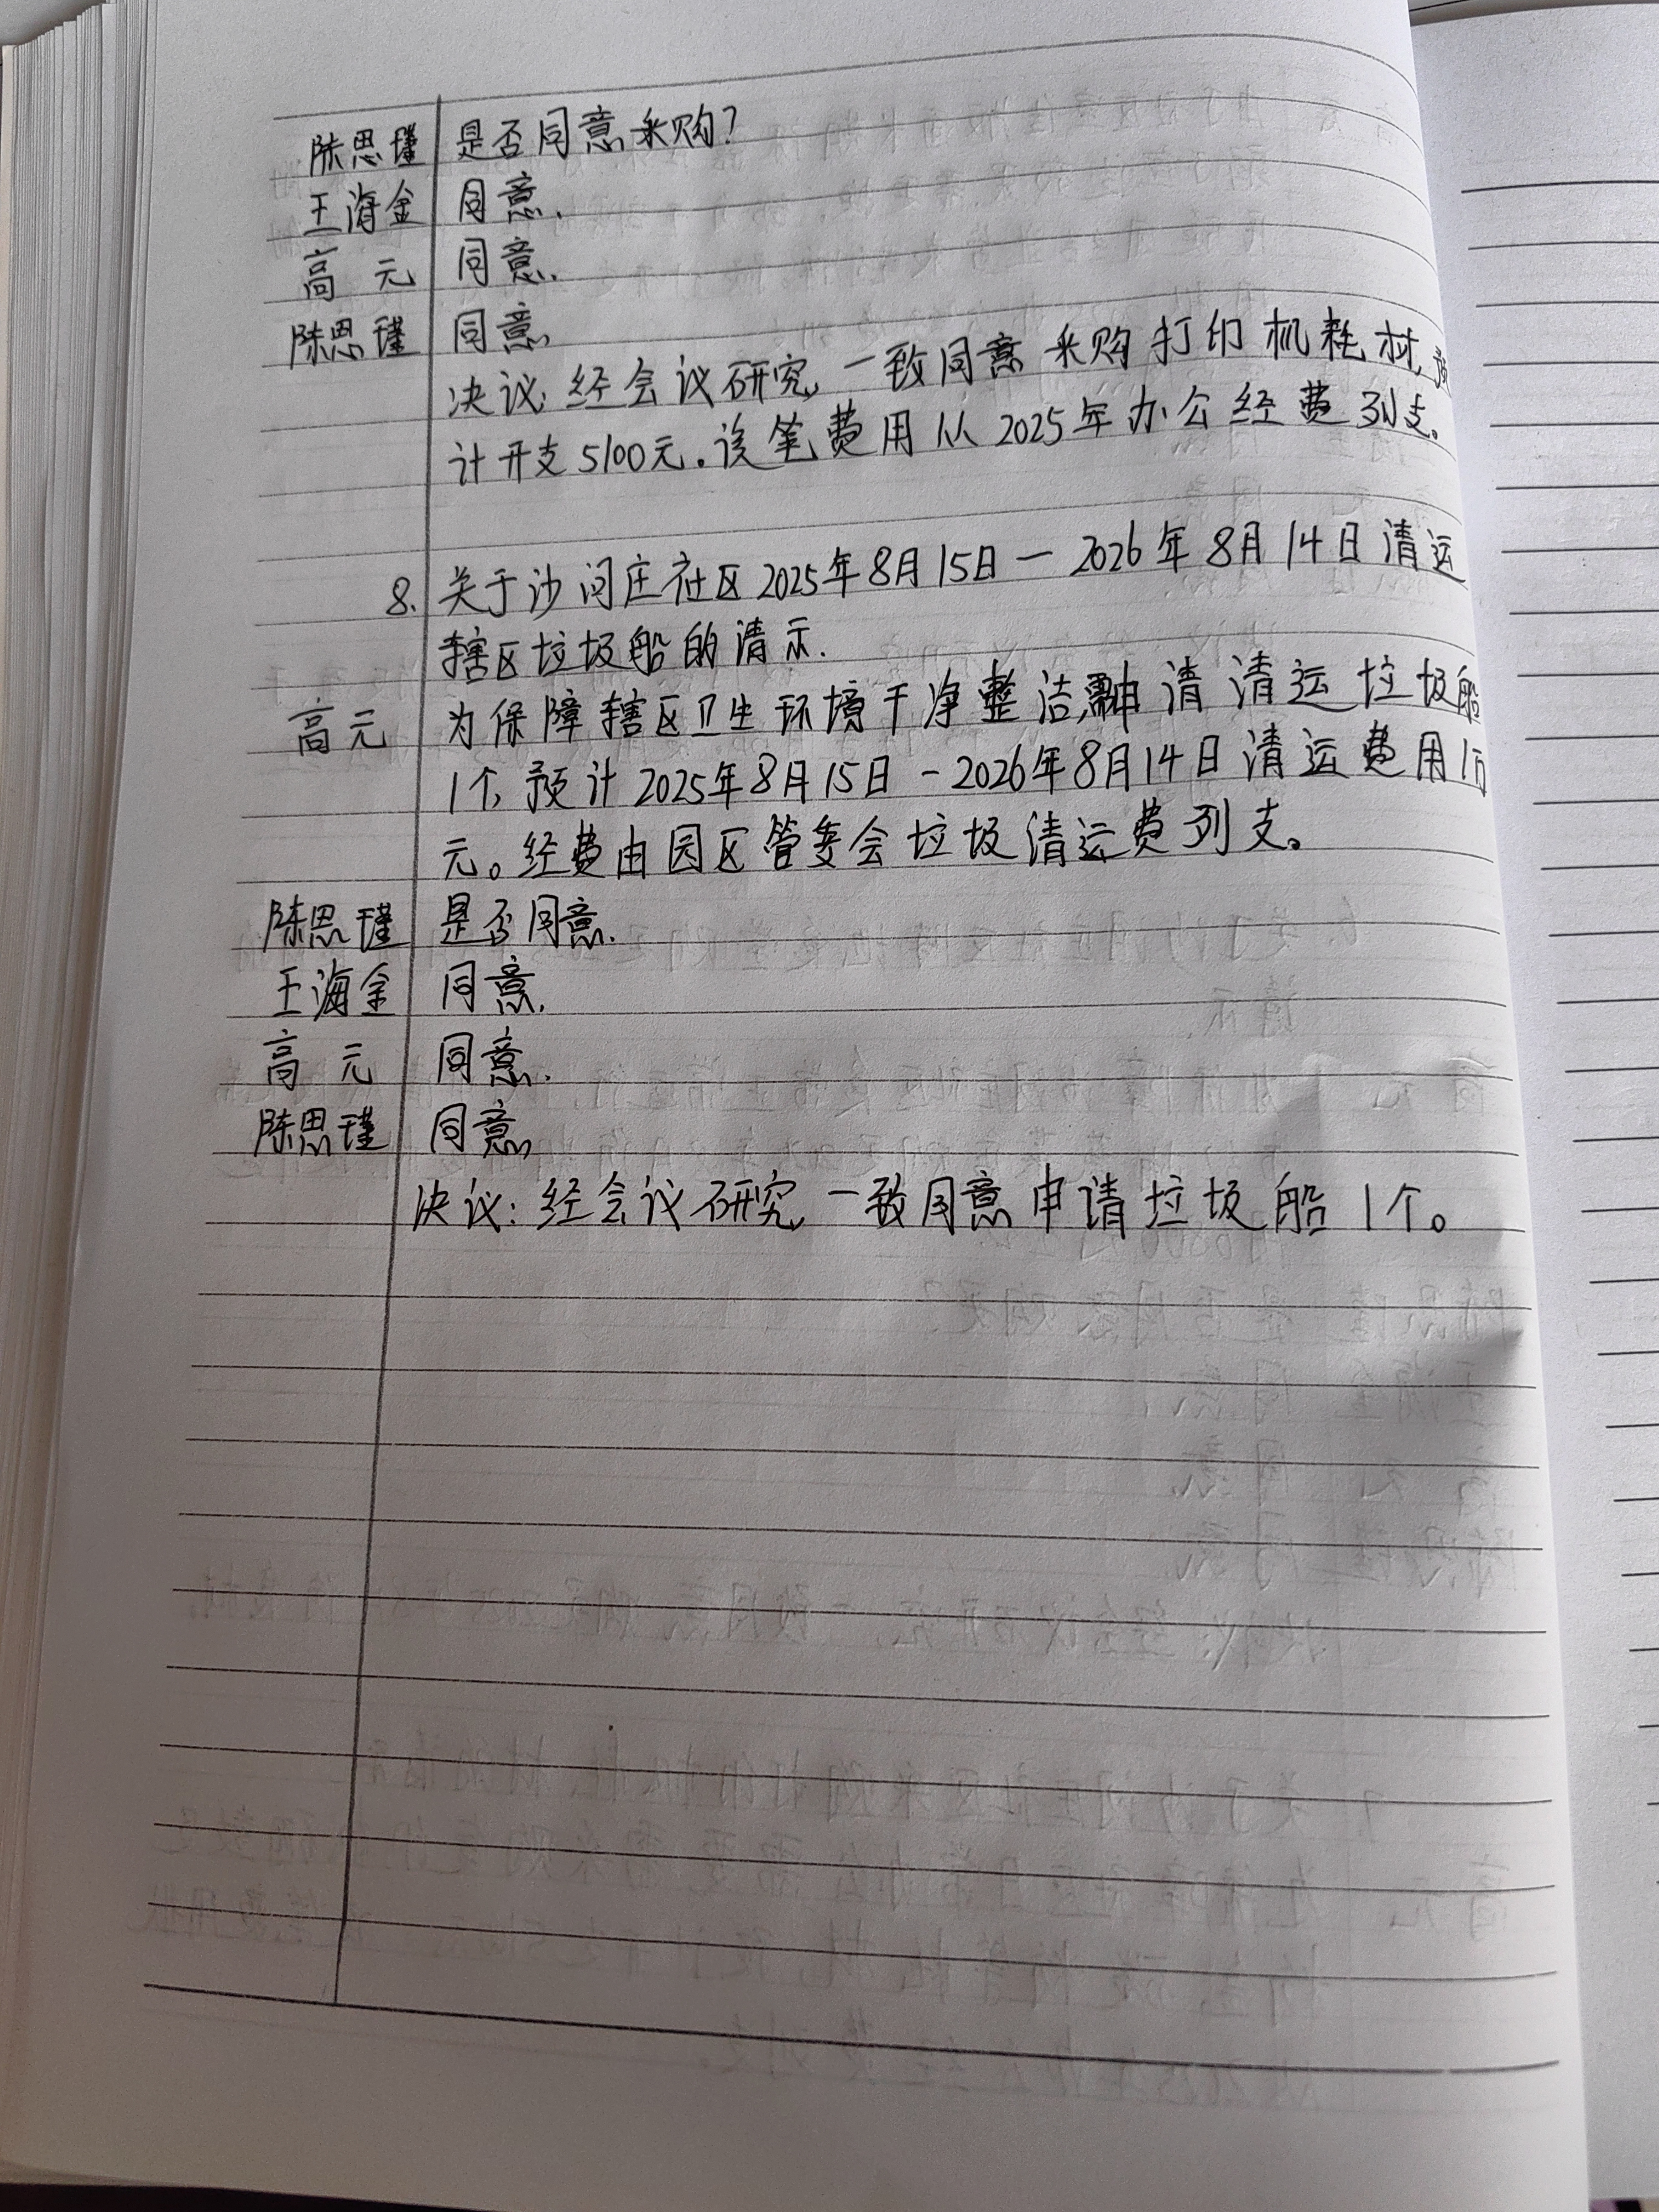 陈思瑾 是否同意采购?
王海金 同意.
高 元 同意.
陈思瑾 同意.
决议: 经会议研究, 一致同意采购打印机耗材, 预
计开支5100元.该笔费用从2025年办公经费列支。
8. 关于沙河庄社区2025年8月15日-2026年8月14日清运
辖区垃圾船的请示.
高元 为保障辖区卫生环境干净整洁,需申请清运垃圾船
1个, 预计2025年8月15日-2026年8月14日清运费用1万
元。经费由园区管委会垃圾清运费列支。
陈思瑾 是否同意.
王海金 同意.
高 元 同意.
陈思瑾 同意.
决议: 经会议研究, 一致同意申请垃圾船1个。